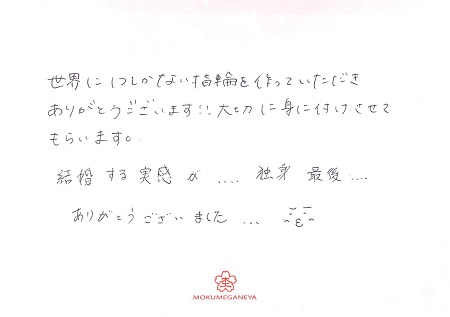 世界に1つしかない指輪を作っていただき
ありがとうございます!!大切に身に付けさせて
もらいます。
結婚する実感が.... 独身最後....
ありがとうございました...
杢
MOKUMEGANEYA